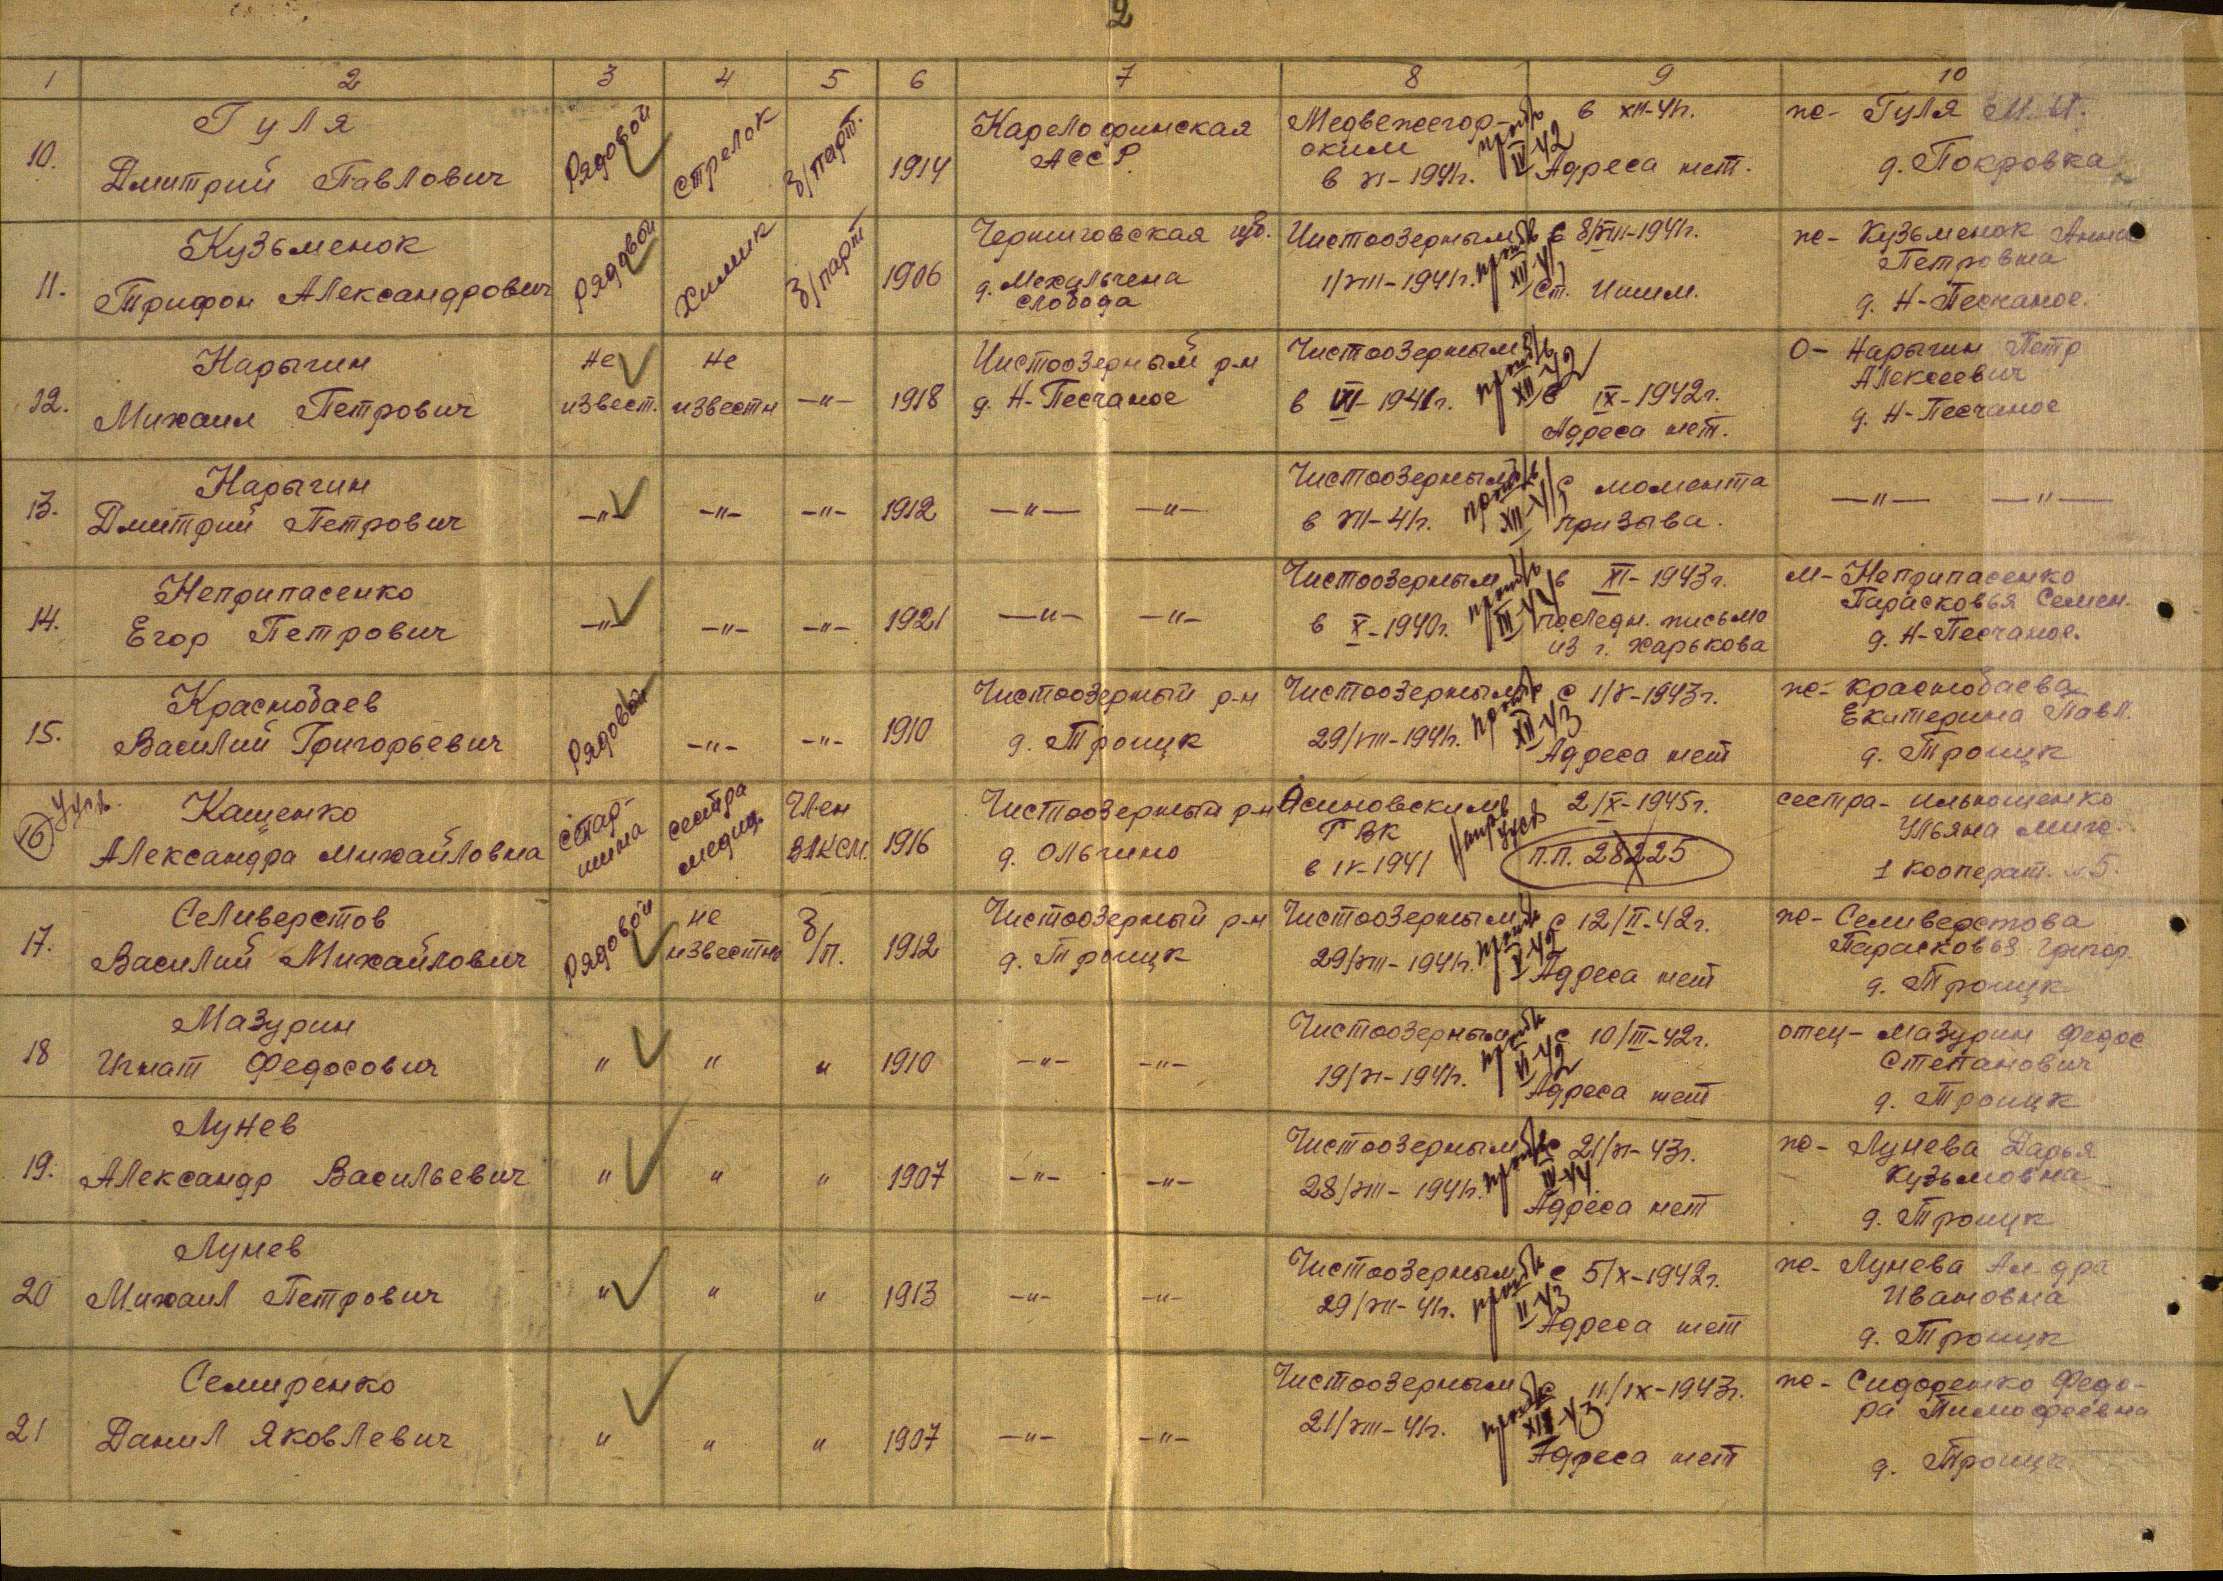 2
1 2 3 4 5 6 7 8 9 10
10. Гуля
Дмитрий Павлович
Рядовой
стрелок
б/парт.
1914
Карелофинская
АССР.
Медвежегор-
ским
в XI-1941г.
проп б/в
IV-42
в XII-41г.
Адреса нет.
ж- Гуля М. И.
д. Покровка
11. Кузьменок
Трифон Александрович
Рядовой
Химик
б/парт
1906
Черниговская губ.
д.
слобода
Чистоозерным
1/VIII-1941г.
проп б/в
XII-41
с 8/VIII-1941г.
Ст. Ишим.
ж- Кузьменок Анна
Петровна
д. Н-Песчаное.
12. Нарыгин
Михаил Петрович
Не
извест.
Не
известн
-"-
1918
Чистоозерный р-н
д. Н-Песчаное
Чистоозерным
в VII-1941г.
проп б/в
XII-42
с IX-1942г.
Адреса нет.
О- Нарыгин Петр
Алексеевич
д. Н-Песчаное
13. Нарыгин
Дмитрий Петрович
-"-
-"-
-"-
1912
-"- -"-
Чистоозерным
в VII-41г.
проп б/в
XII-41
с момента
призыва.
-"- -"-
14. Неприпасенко
Егор Петрович
-"-
-"-
-"-
1921
-"- -"-
Чистоозерным
в X-1940г.
проп б/в
в XI-1943г.
последн. письмо
из г. Харькова
м- Неприпасенко
Парасковья Семен.
д. Н-Песчаное.
15. Краснобаев
Василий Григорьевич
Рядовой
-"-
-"-
1910
Чистоозерный р-н
д. Троицк
Чистоозерным
29/VIII-1941г.
проп б/в
XII-43
с 1/X-1943г.
Адреса нет
ж- Краснобаева
Екатерина Павл.
д. Троицк
16
Кашенко
Александра Михайловна
Стар-
шина
сестра
медиц.
Член
ВЛКСМ.
1916
Чистоозерный р-н
д. Ольгино
Осиновским
ГВК
в IV-1941
2/X-1945г.
п.п. 28225
сестра- Ильюшенко
Ульяна Мих.
1 кооперат. 5.
17. Селиверстов
Василий Михайлович
Рядовой
не
известно
б/п.
1912
Чистоозерный р-н
д. Троицк
Чистоозерным
29/VIII-1941г.
проп б/в
V-42
с 12/II-42г.
Адреса нет
ж- Селиверстова
Парасковья Григор.
д. Троицк
18 Мазурин
Игнат Федосович
"
"
"
1910
-"- -"-
Чистоозерным
19/XI-1941г.
проп б/в
VI-42
с 10/III-42г.
Адреса нет
отец- Мазурин Федос
Степанович
д. Троицк
19. Лунев
Александр Васильевич
"
"
"
1907
-"- -"-
Чистоозерным
28/VIII-1941г.
проп б/в
IV-44
с 21/XI-43г.
Адреса нет
ж- Лунева Дарья
Кузьмовна
д. Троицк
20 Лунев
Михаил Петрович
"
"
"
1913
-"- -"-
Чистоозерным
29/VII-41г.
проп б/в
II-43
с 5/X-1942г.
Адреса нет
ж- Лунева Ал-дра
Ивановна
д. Троицк
21 Семиренко
Данил Яковлевич
"
"
"
1907
-"- -"-
Чистоозерным
21/VIII-41г.
проп б/в
XII-43
с 11/IX-1943г.
Адреса нет
ж- Сидоренко Федо-
ра Тимофеевна
д. Троицк.